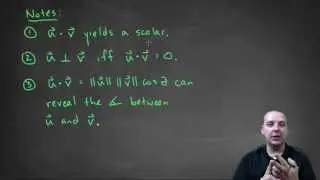 Notes:
① u⃗ · v⃗ yields a scalar.
② u⃗ ⊥ v⃗ iff u⃗ · v⃗ = 0.
③ u⃗ · v⃗ = ||u⃗|| ||v⃗|| cos θ can
reveal the ∠ between
u⃗ and v⃗.